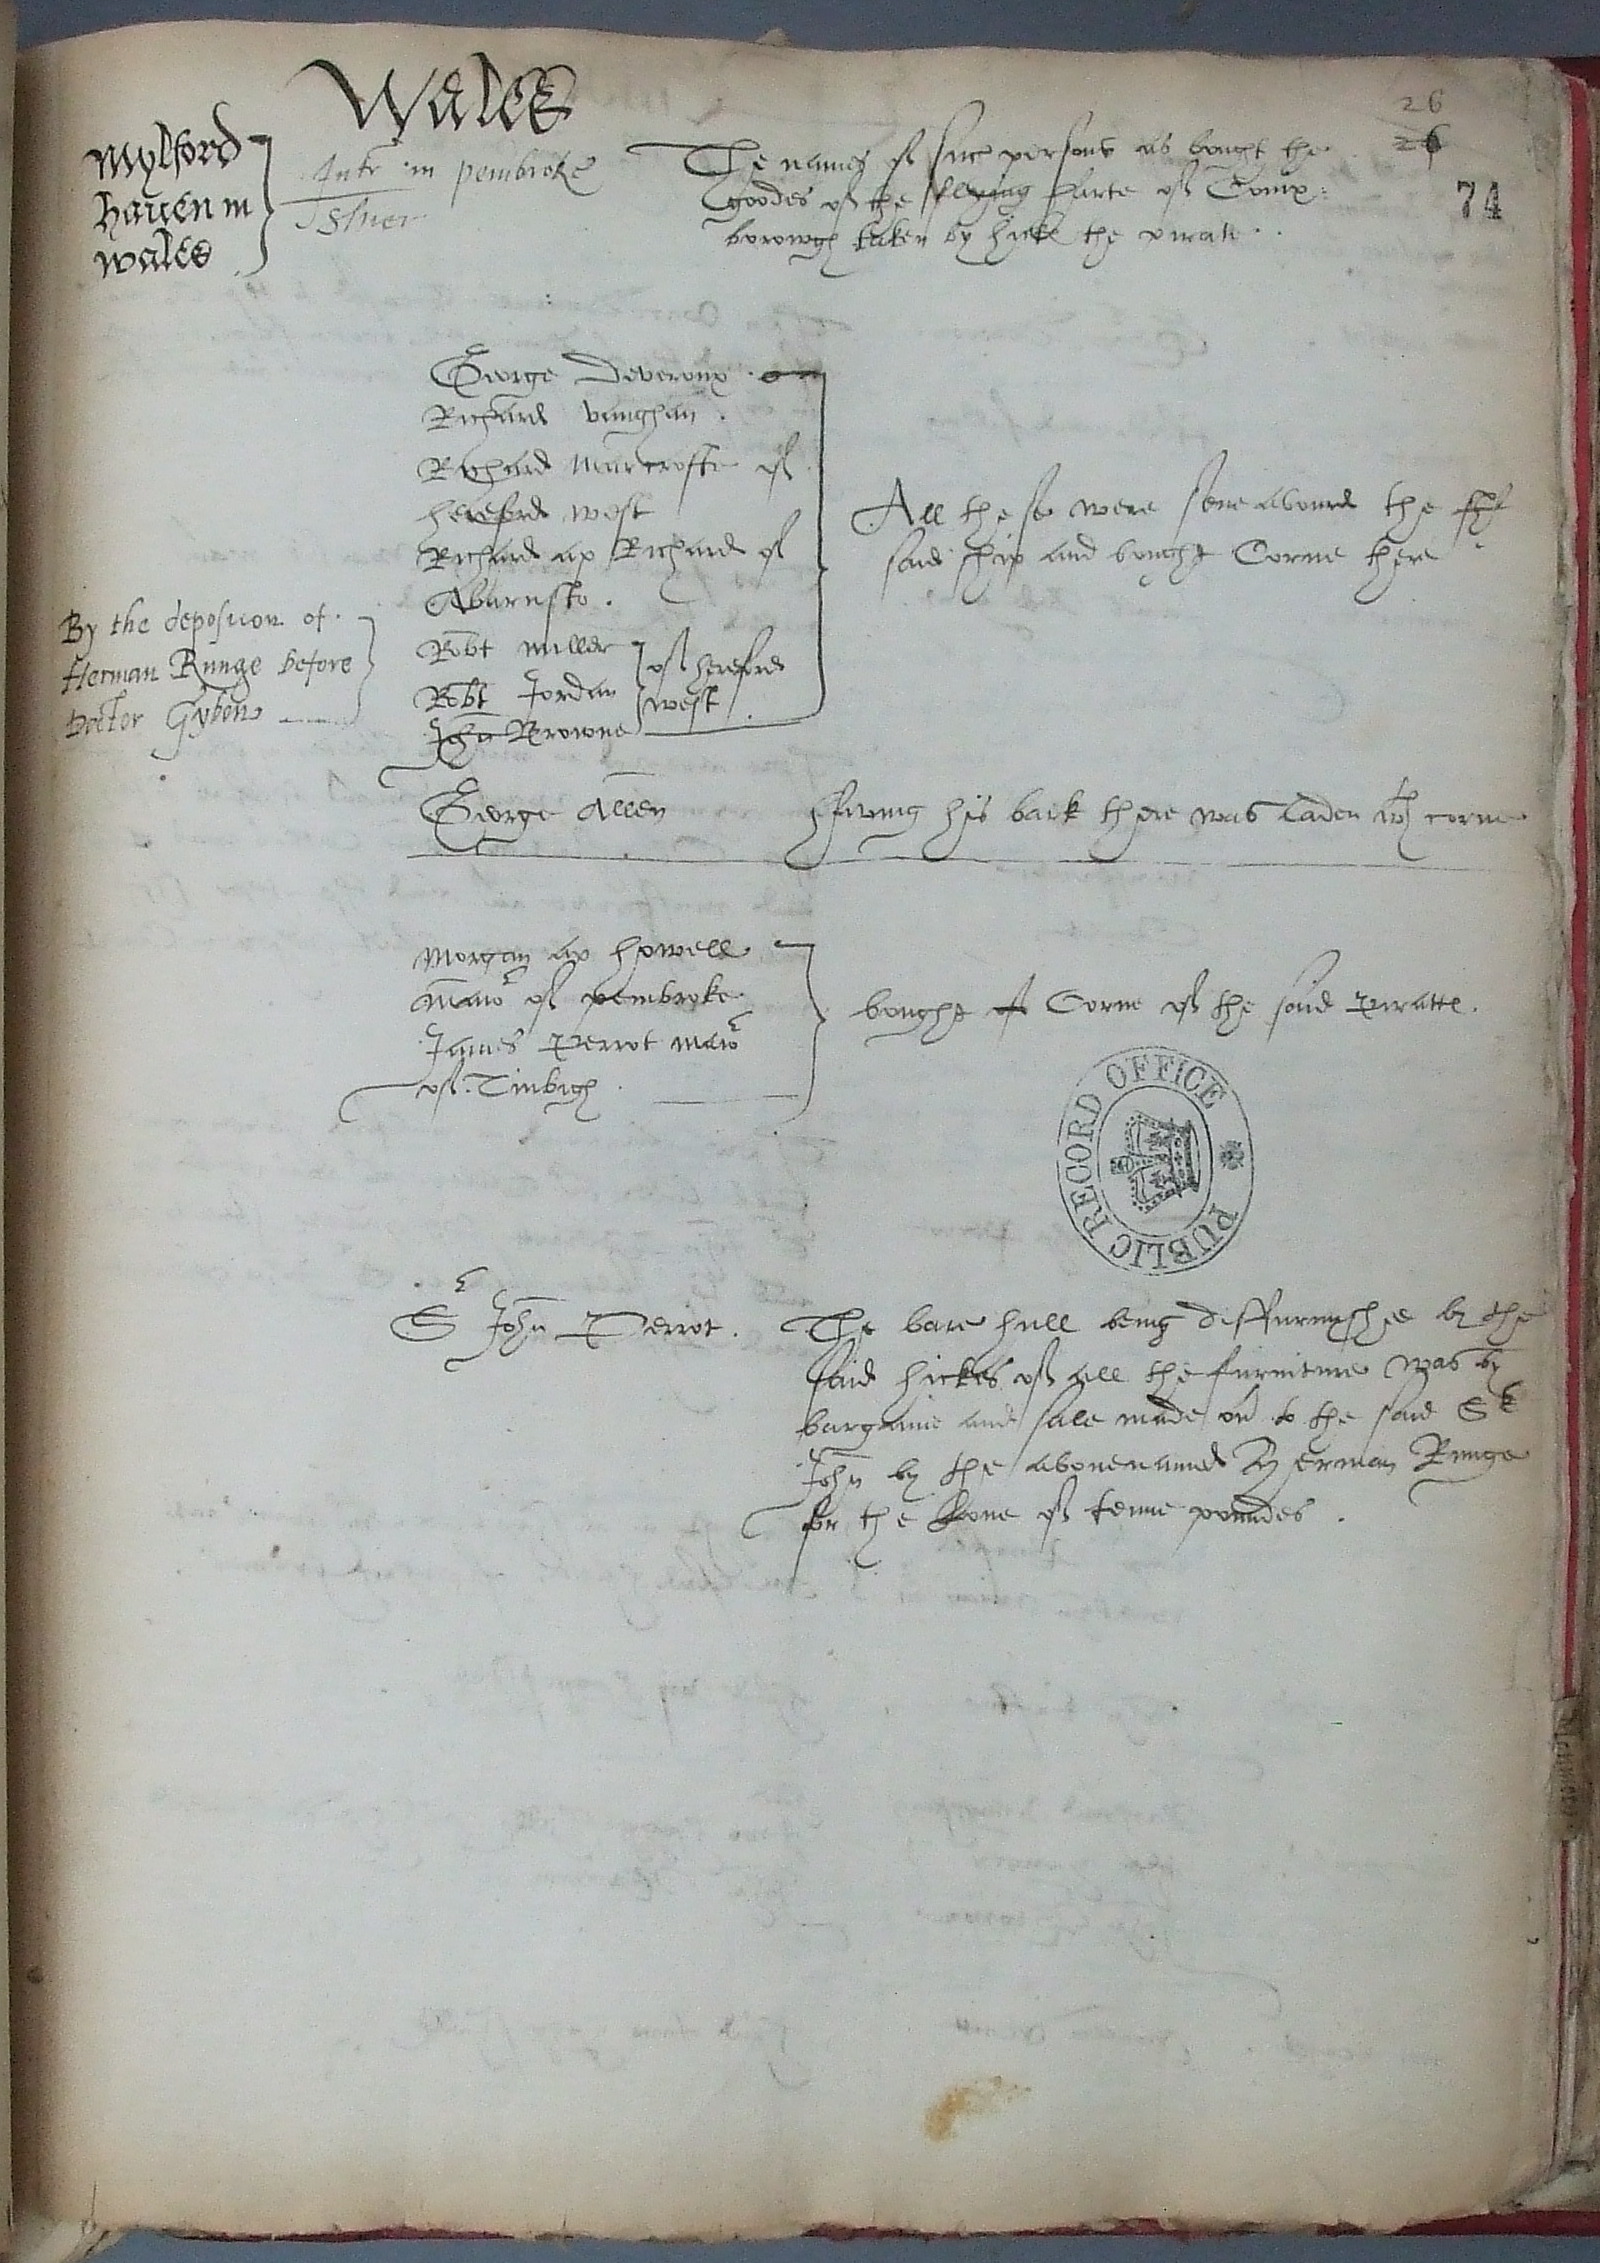 Wales
26
26
74
Mylford
Hauen in
Wales
Intr in pembroke
The names of such persons as bought the
goodes of the flyeng harte of Comp:
borowgh taken by Hicks the pirate.
George Deveroux
Richard vaughan.
Richard Marcrofte of
hereford west
Richard ap Richard of
By the deposicon of
Herman Runge before
Docter Gyben
Robt miller
Robt Jordan
of hereford
west
John Browne
All these were sene abourd the
said ship and bought Corne there
George Allen
Having his bark there was laden wth corne
Morgan ap howell
maior of pembroke
James Perrot maior
of Tinbigh.
bought of Corne of the said Piratte.
PUBLIC RECORD OFFICE
Sr John Perrot.
The bare hull being disfurnished by the
said hickes of all the furniture was by
bargaine and sale made over to the said Sr
John by the abovenamed Herman Runge
for the some of tenne poundes.